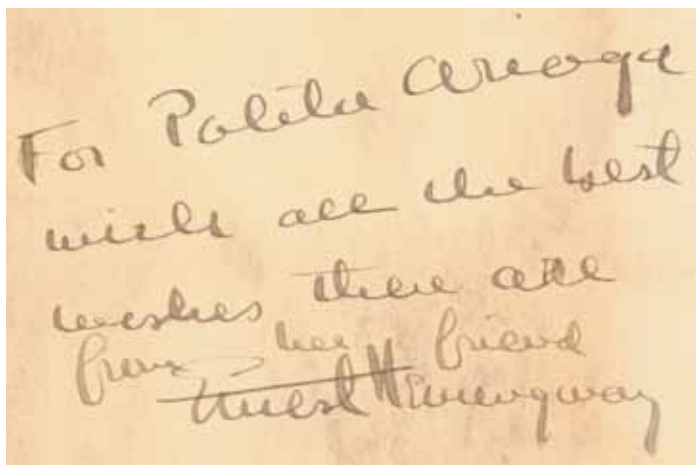 For Polita Arioga
with all the best
wishes there are
from her friend
Ernest Hemingway